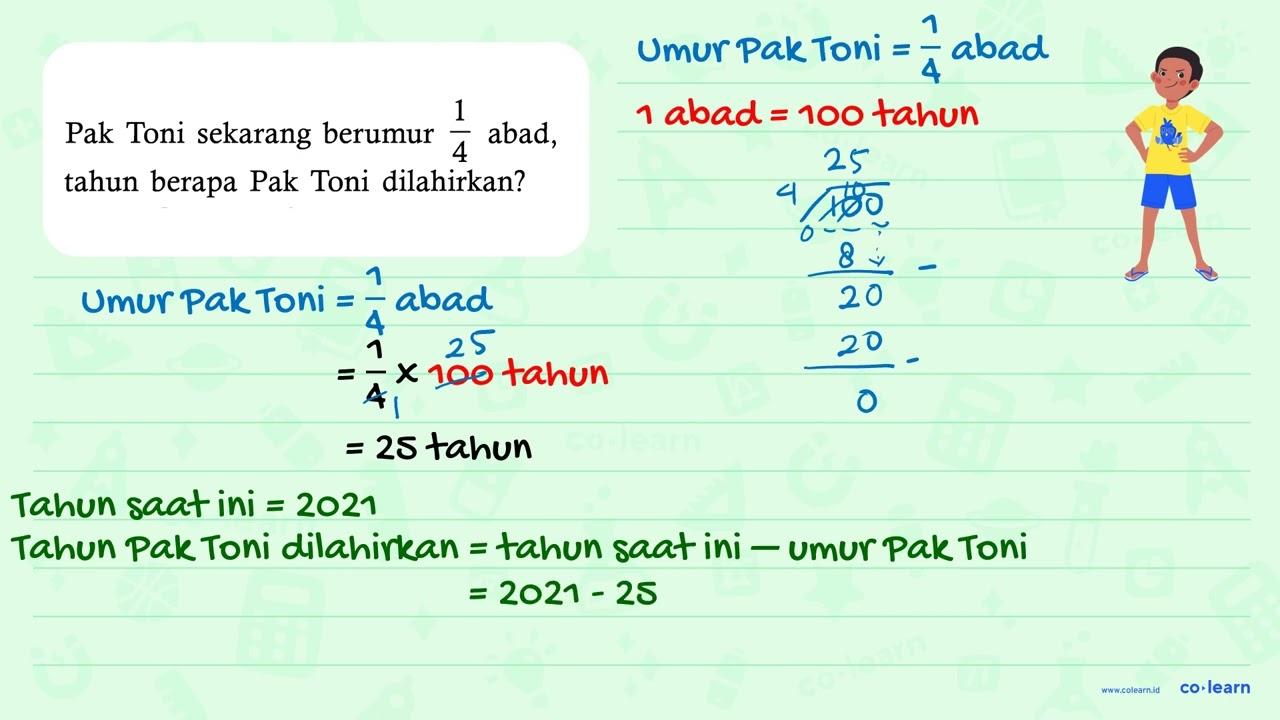 Pak Toni sekarang berumur 1/4 abad,
tahun berapa Pak Toni dilahirkan?
Umur Pak Toni = 1/4 abad
= 1/4 × 100 tahun
25
1
= 25 tahun
Umur Pak Toni = 1/4 abad
1 abad = 100 tahun
25
10
4 100
0
8 -
20
20 -
0
Tahun saat ini = 2021
Tahun Pak Toni dilahirkan = tahun saat ini — umur Pak Toni
= 2021 - 25
co·learn
www.colearn.id co·learn